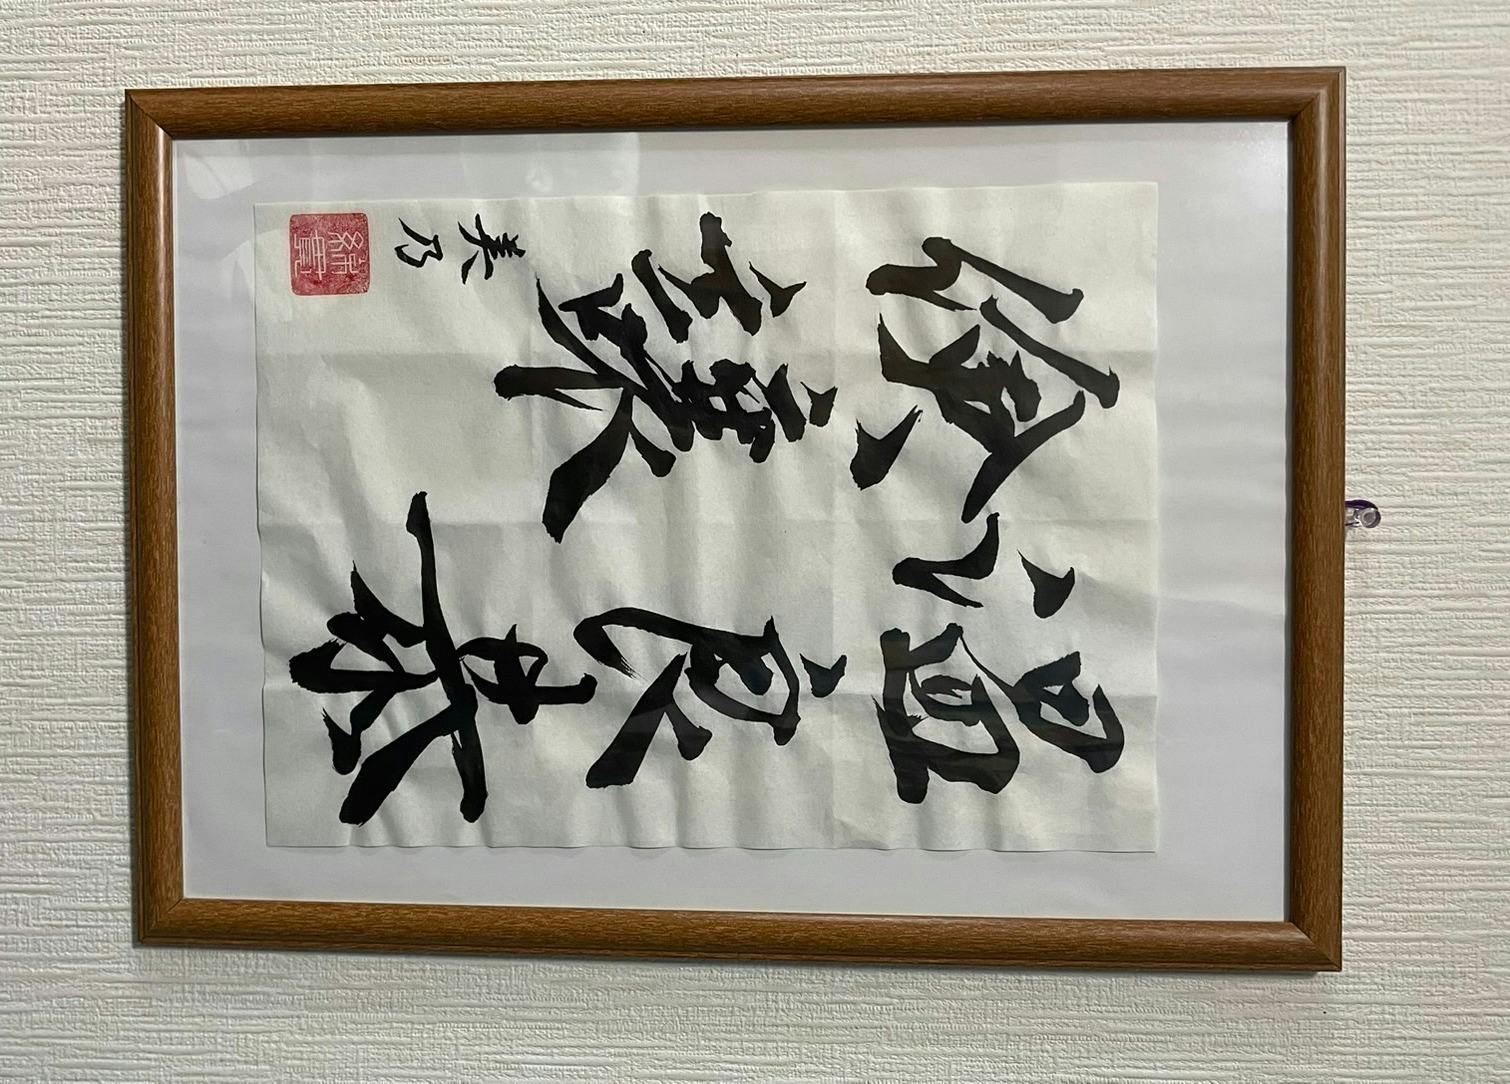 温良恭
倹譲
美乃